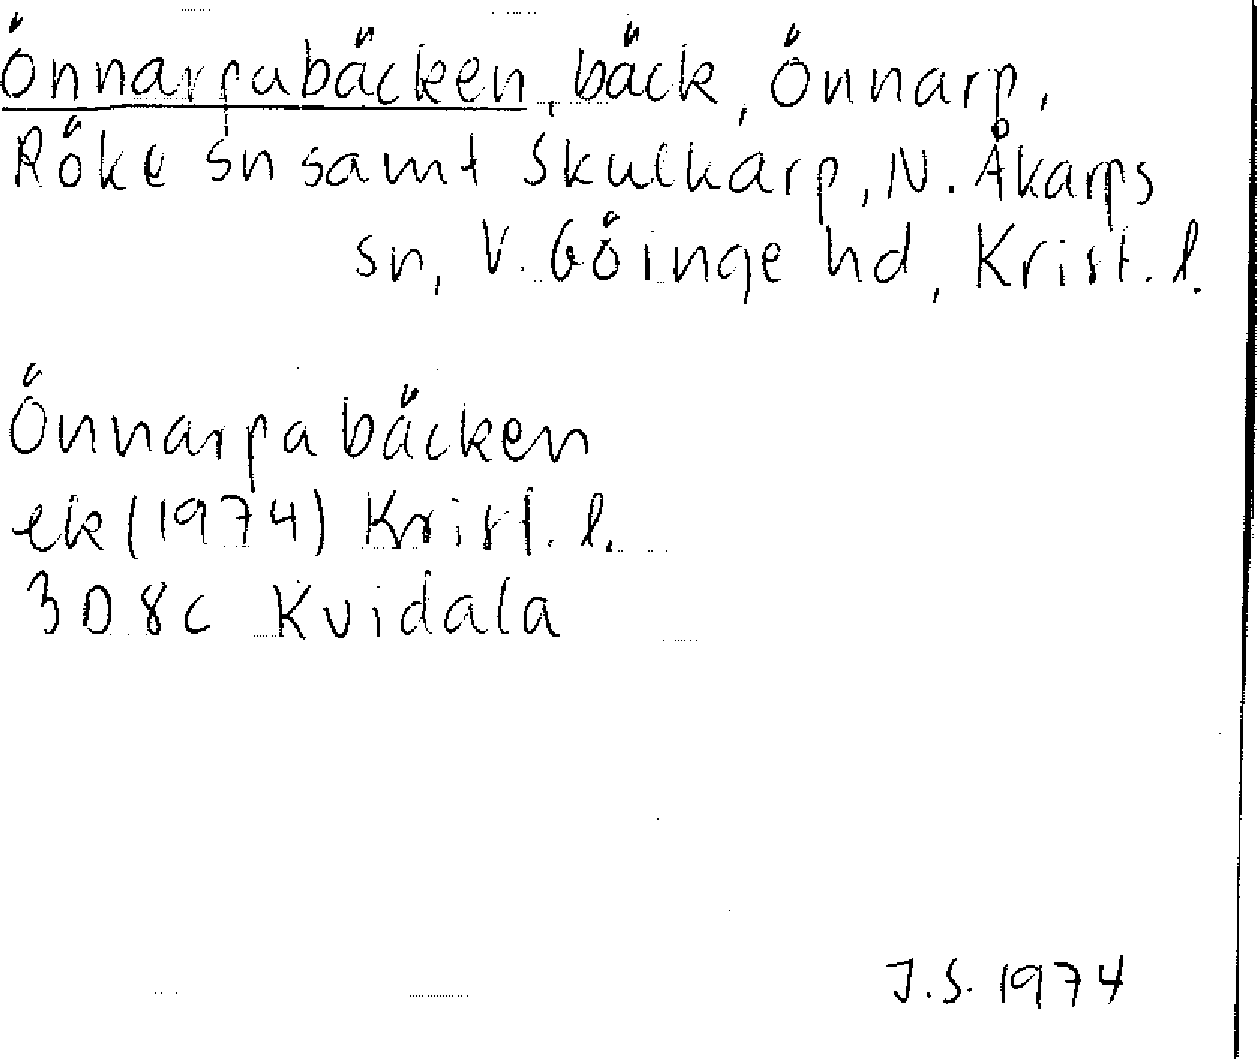 Önnarpabäcken, bäck, Önnarp,
Röke sn samt Skulkarp, N. Åkarps
sn, V. Göinge hd, Krist. l.
Önnarpabäcken
ek (1974) Krist. l.
3D 8c Kvidala
J.S. 1974